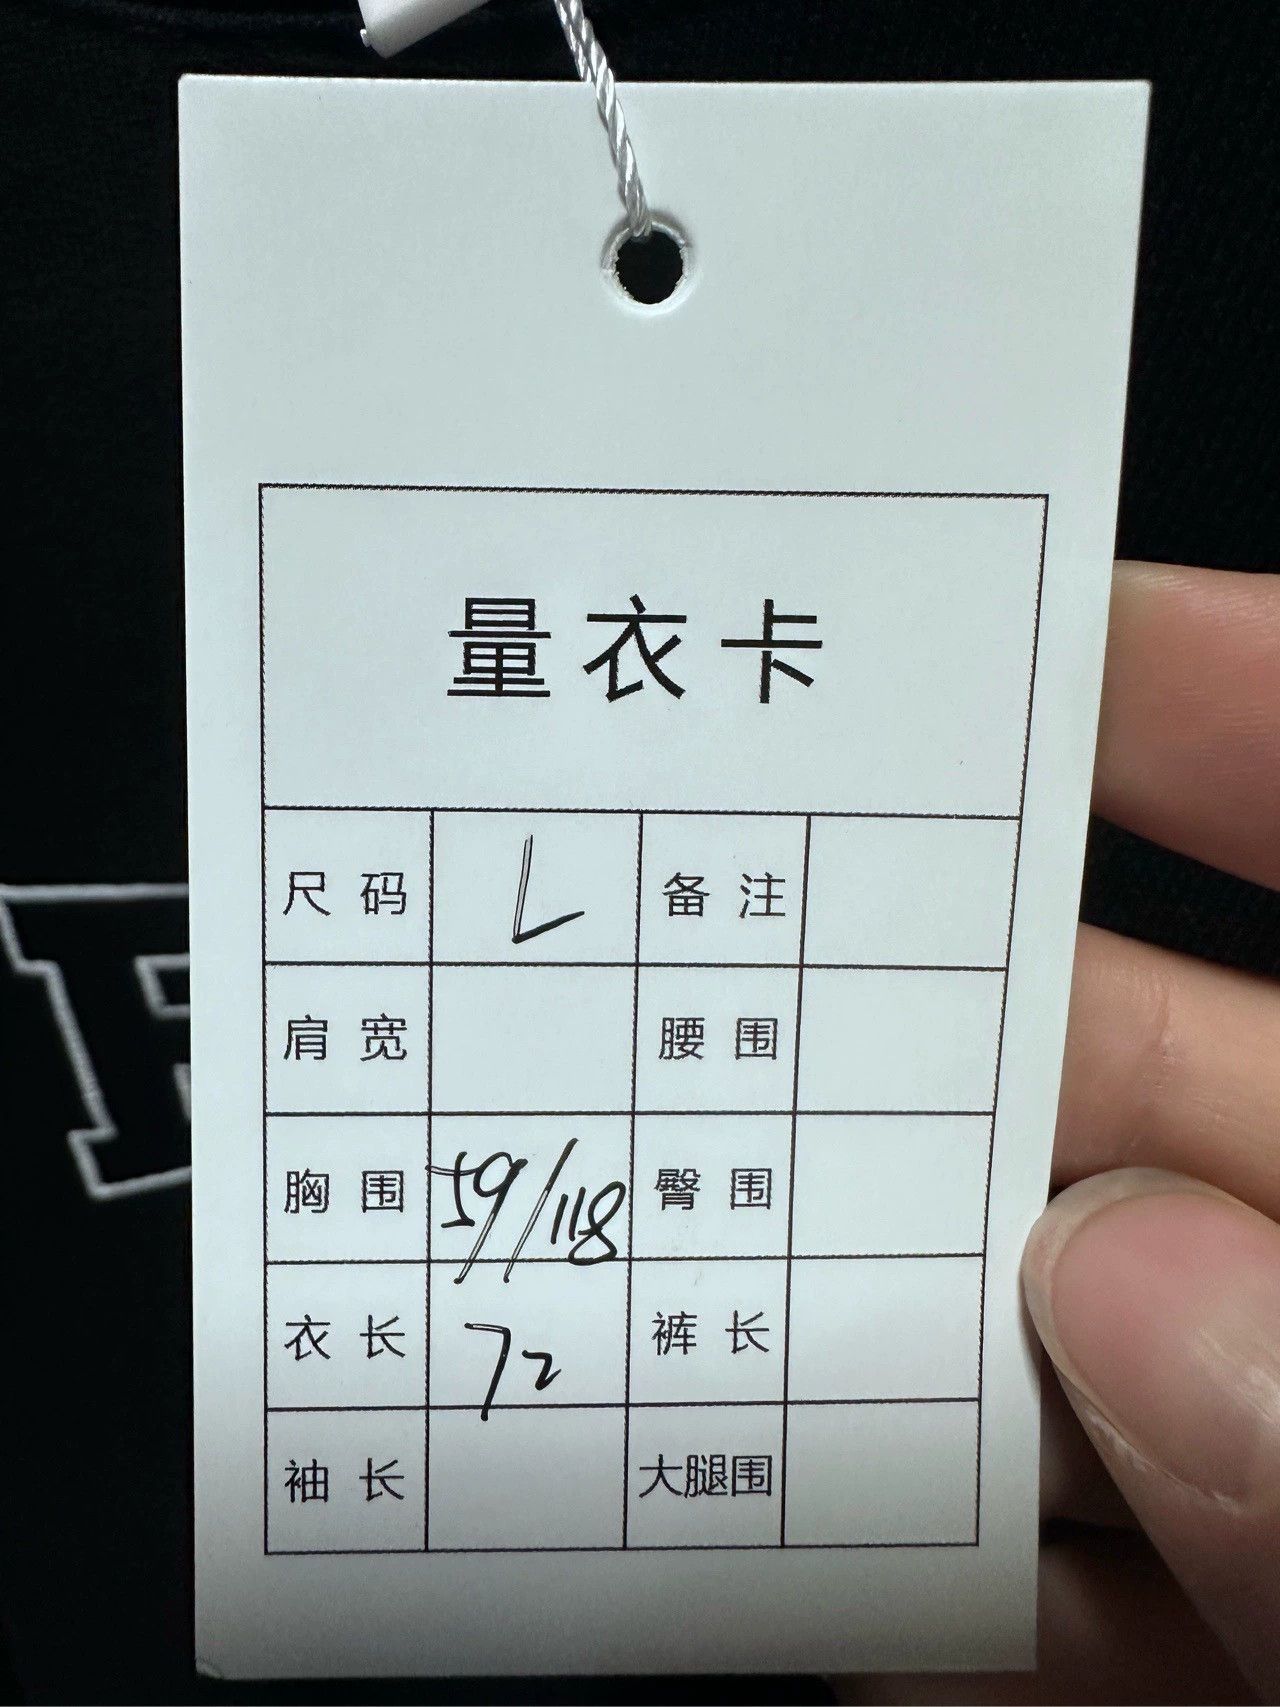 量衣卡
尺码 L 备注
肩宽 腰围
胸围 59/118 臀围
衣长 72 裤长
袖长 大腿围